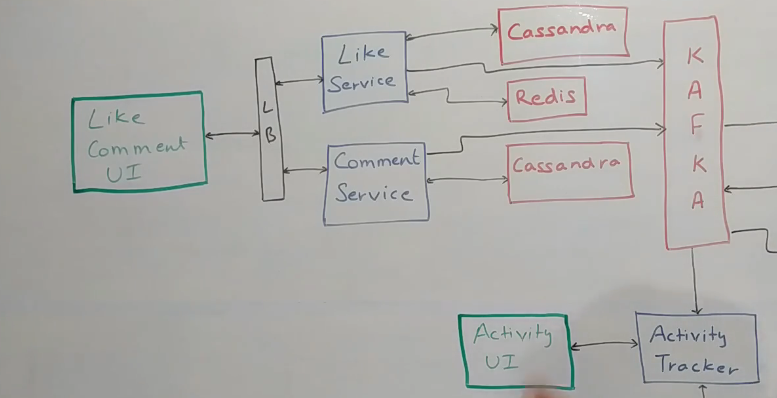 Like
Comment
UI
L
B
Like
Service
Comment
Service
Cassandra
Redis
Cassandra
K
A
F
K
A
Activity
UI
Activity
Tracker